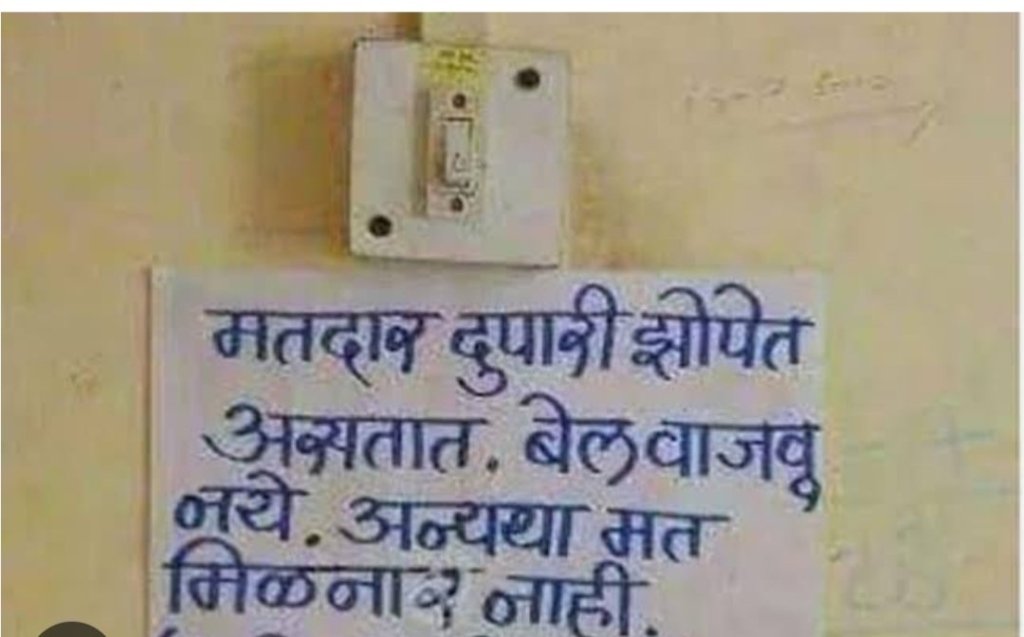 मतदार दुपारी झोपेत
असतात. बेल वाजवू
नये. अन्यथा मत
मिळनार नाही.